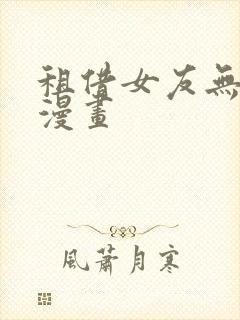 租借女友無
漫畫
風蕭月寒